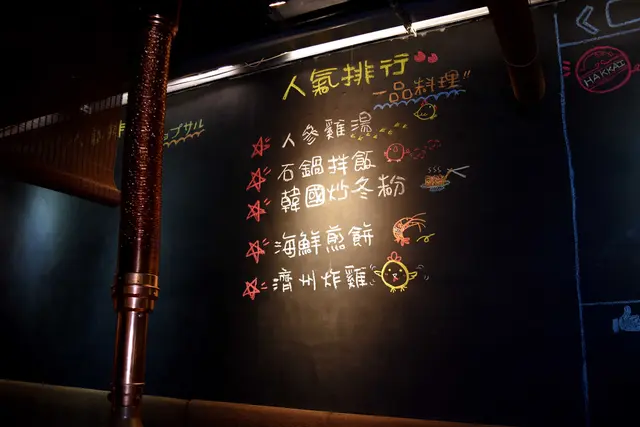 人氣排行
一品料理"
人參雞湯
石鍋拌飯
韓國炒冬粉
海鮮煎餅
濟州炸雞
プサル
HAKKAI